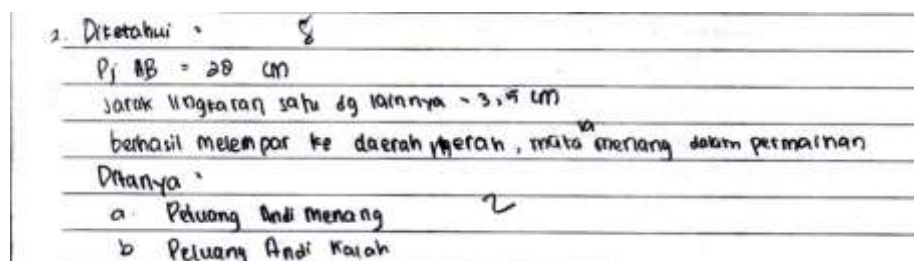 2. Diketahui : 8
Pj AB = 28 cm
Jarak lingkaran satu dg lainnya = 3,5 cm
berhasil melempar ke daerah merah, maka ia menang dalam permainan
Ditanya :
a. Peluang Andi menang 2
b Peluang Andi Kalah